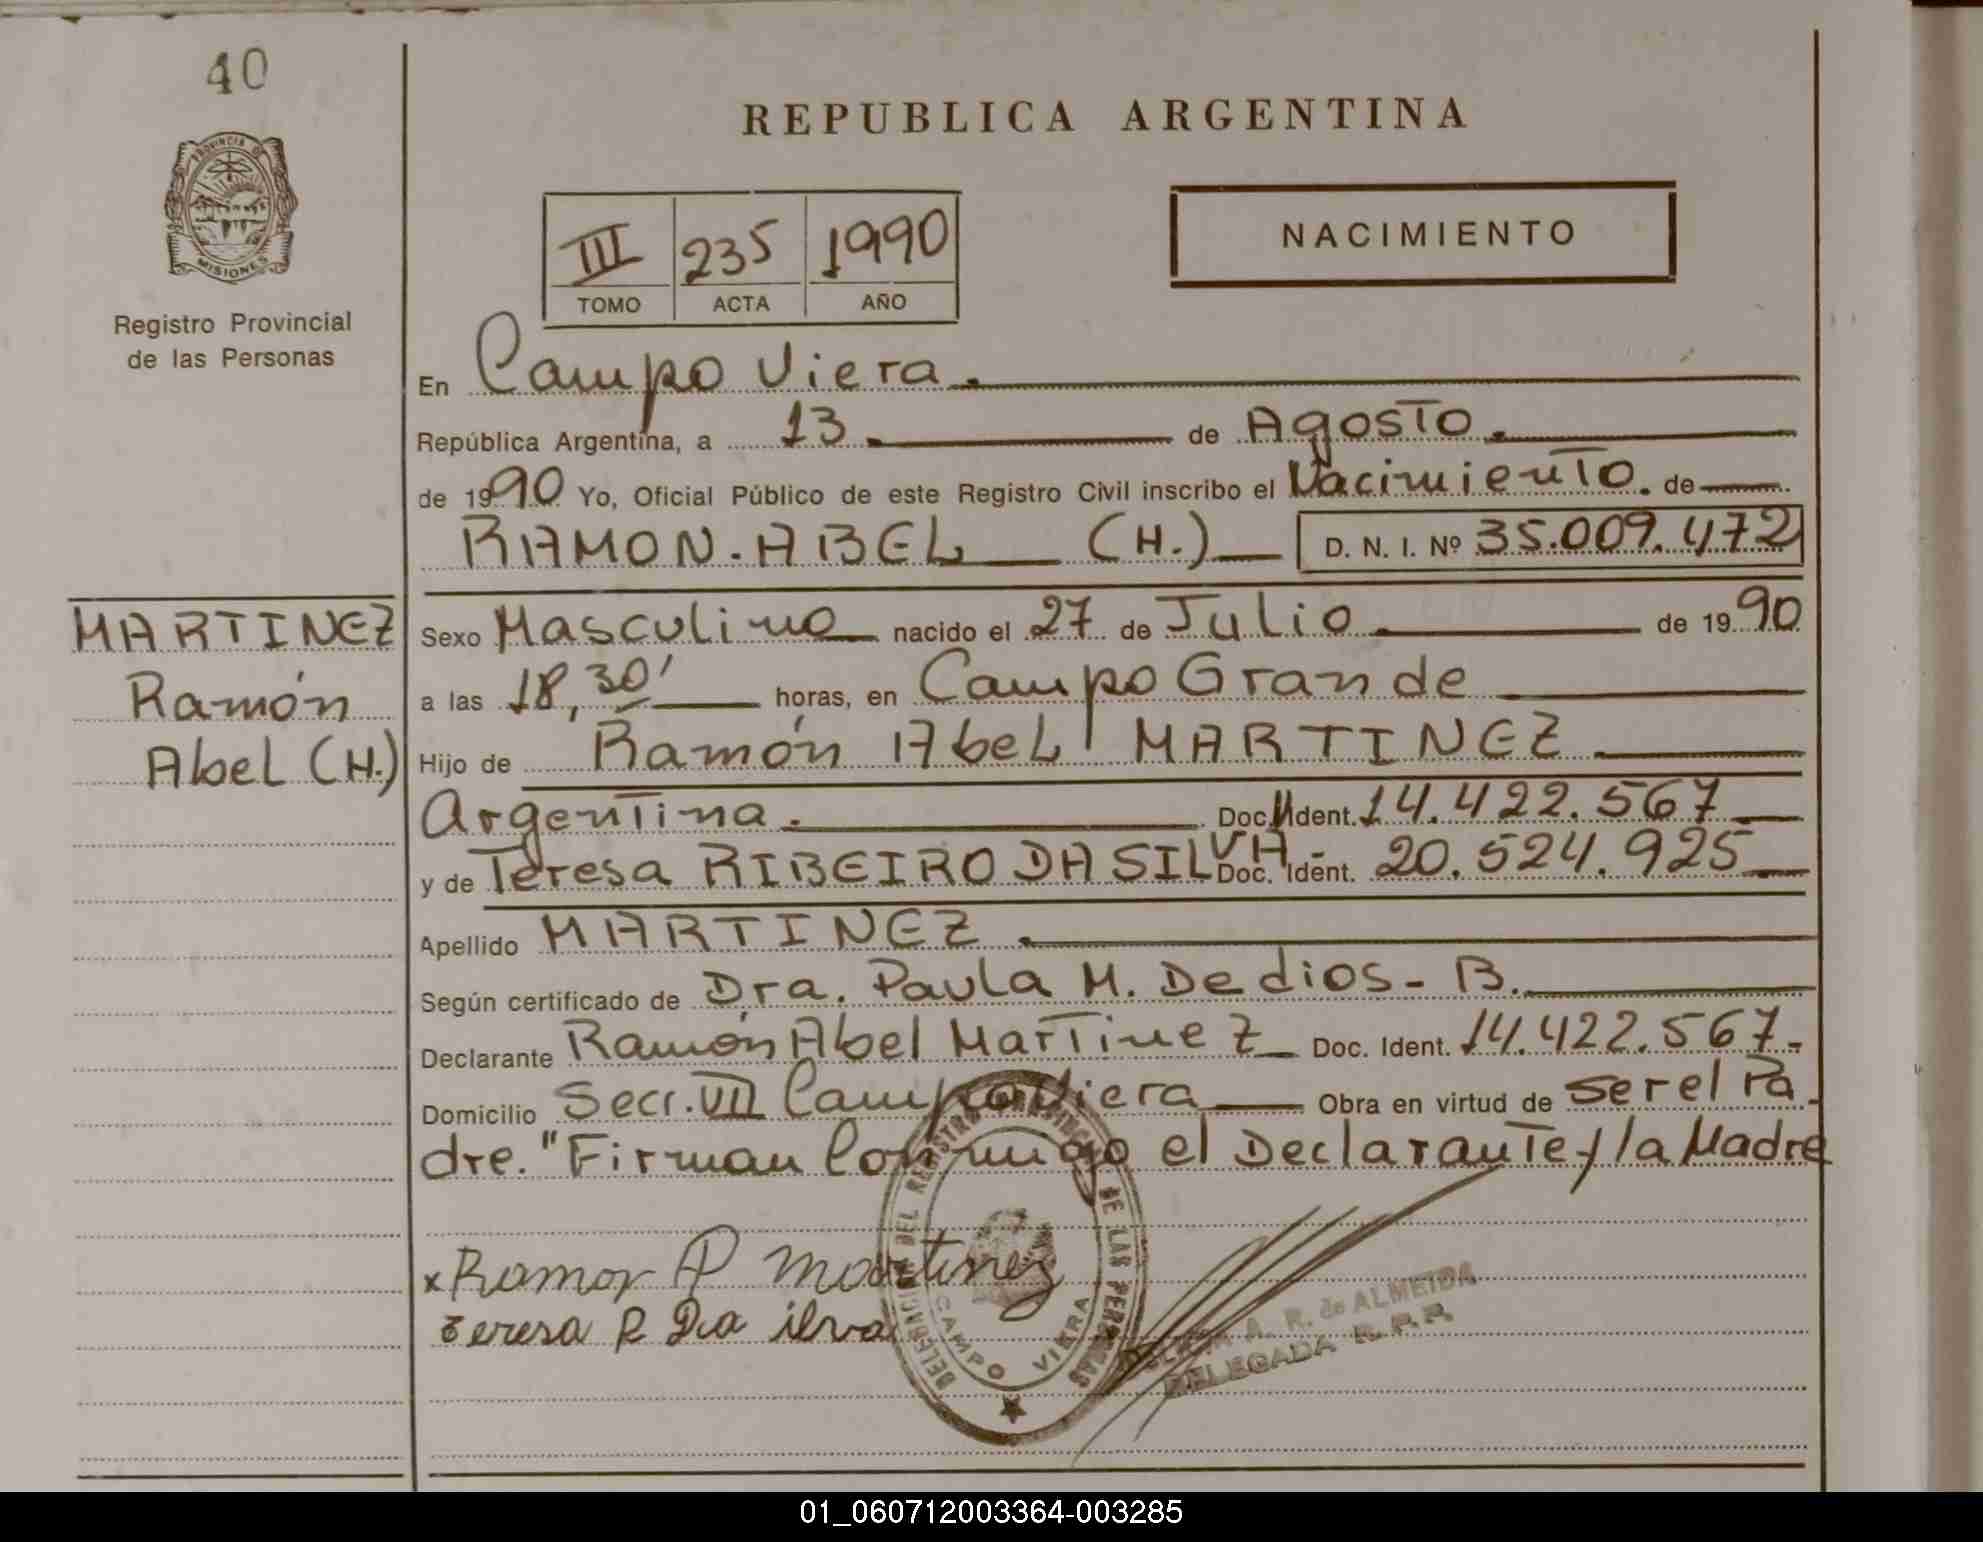 40
REPUBLICA ARGENTINA
PROVINCIA DE
MISIONES
Registro Provincial
de las Personas
III 235 1990
TOMO ACTA AÑO
NACIMIENTO
En Campo Viera.
República Argentina, a 13 de Agosto.
de 1990 Yo, Oficial Público de este Registro Civil inscribo el Nacimiento. de
RAMON. ABEL (H.) D. N. I. Nº 35.009.472
MARTINEZ
Ramón
Abel (H.)
Sexo Masculino nacido el 27 de Julio de 1990
a las 18,30' horas, en Campo Grande
Hijo de Ramón Abel MARTINEZ
Argentina. Doc. Ident. 14.422.567
y de Teresa RIBEIRO DA SILVA - Doc. Ident. 20.524.925
Apellido MARTINEZ.
Según certificado de Dra. Paula M. De dios - B.
Declarante Ramón Abel Martinez Doc. Ident. 14.422.567-
Domicilio Secc. VII Campo Viera Obra en virtud de ser el Pa
dre. "Firman Conmigo el Declarante y la Madre
x Ramon A Martinez
teresa R Da ilva
DELEGACION DEL REGISTRO DE LAS PERSONAS
CAMPO VIERA
A. R. de ALMEIDA
DELEGADA R. P. P.
01_060712003364-003285